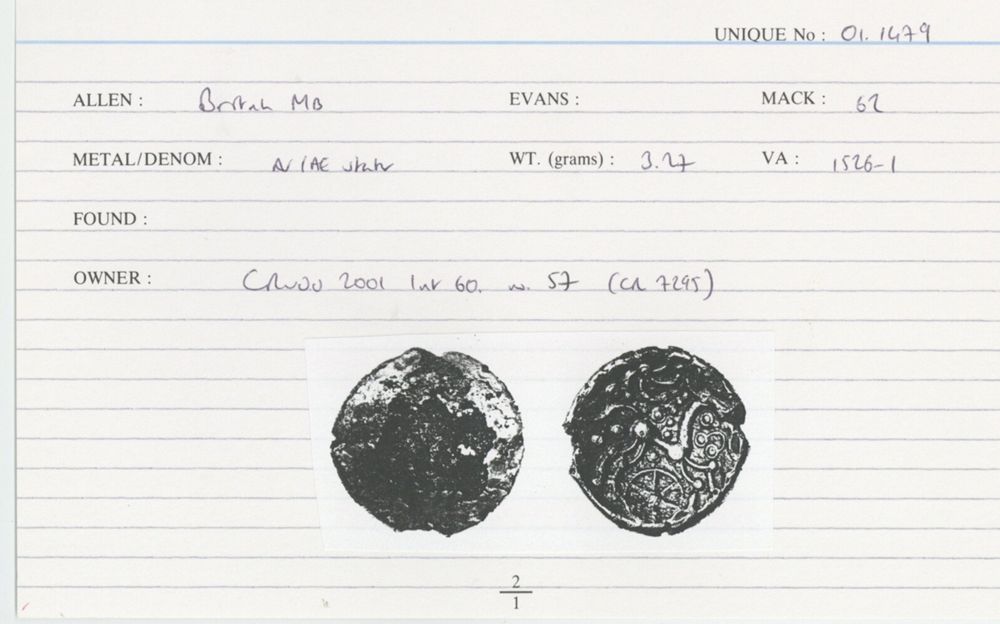 UNIQUE No : 01.1479
ALLEN : British MB EVANS : MACK : 62
METAL/DENOM : AV/AE stater WT. (grams) : 3.27 VA : 1526-1
FOUND :
OWNER : CNWDU 2001 60. 57 (CR 7295)
2
1